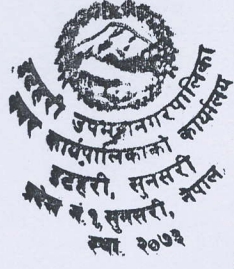 इटहरी उपमहानगरपालिका
नगर कार्यपालिकाको कार्यालय
इटहरी, सुनसरी
प्रदेश नं. १, सुनसरी, नेपाल
स्था. २०७३